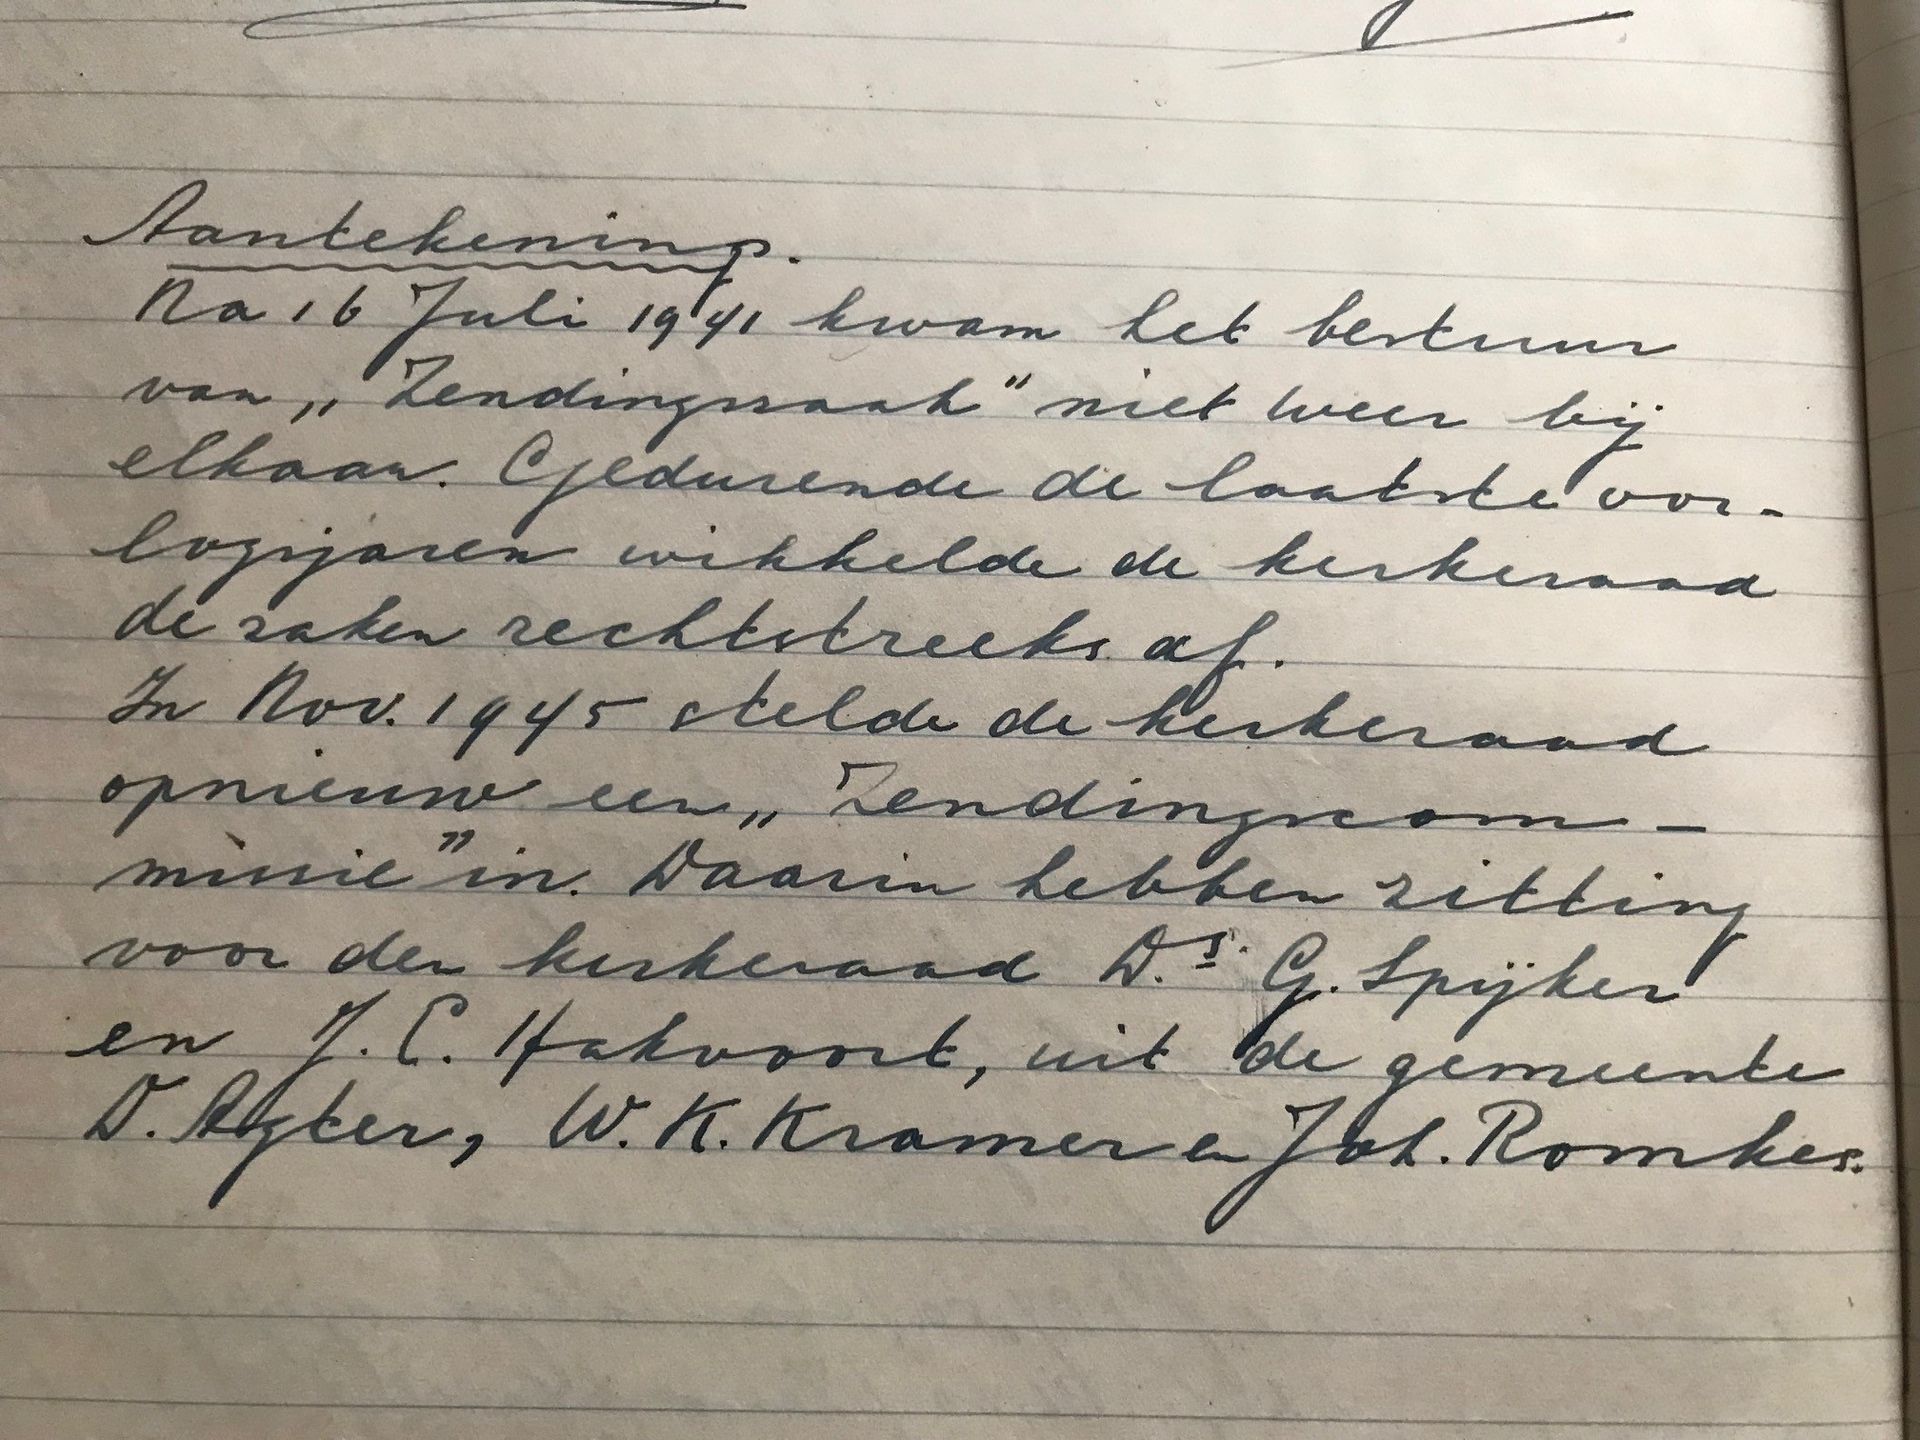 Aantekening.
Na 16 Juli 1941 kwam het bestuur
van „Zendingszaak” niet weer bij
elkaar. Gedurende de laatste oor-
logsjaren wikkelde de kerkeraad
de zaken rechtstreeks af.
In Nov. 1945 stelde de kerkeraad
opnieuw een „Zendingscom-
missie” in. Daarin hebben zitting
voor den kerkeraad Ds. G. Spijker
en J. C. Hakvoort, uit de gemeente
D. Agter, W. K. Kramer en Joh. Romkes.